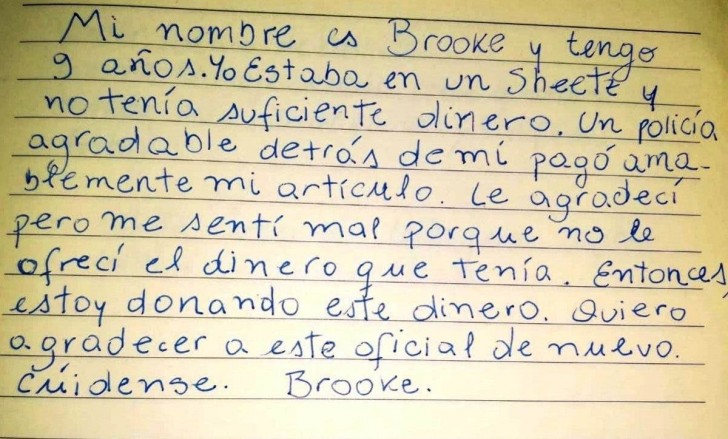 Mi nombre es Brooke y tengo
9 años. Yo Estaba en un Sheetz y
no tenía suficiente dinero. Un policía
agradable detrás de mí pagó ama-
blemente mi artículo. Le agradecí
pero me sentí mal porque no le
ofrecí el dinero que tenía. Entonces
estoy donando este dinero. Quiero
agradecer a este oficial de nuevo.
Cuídense. Brooke.